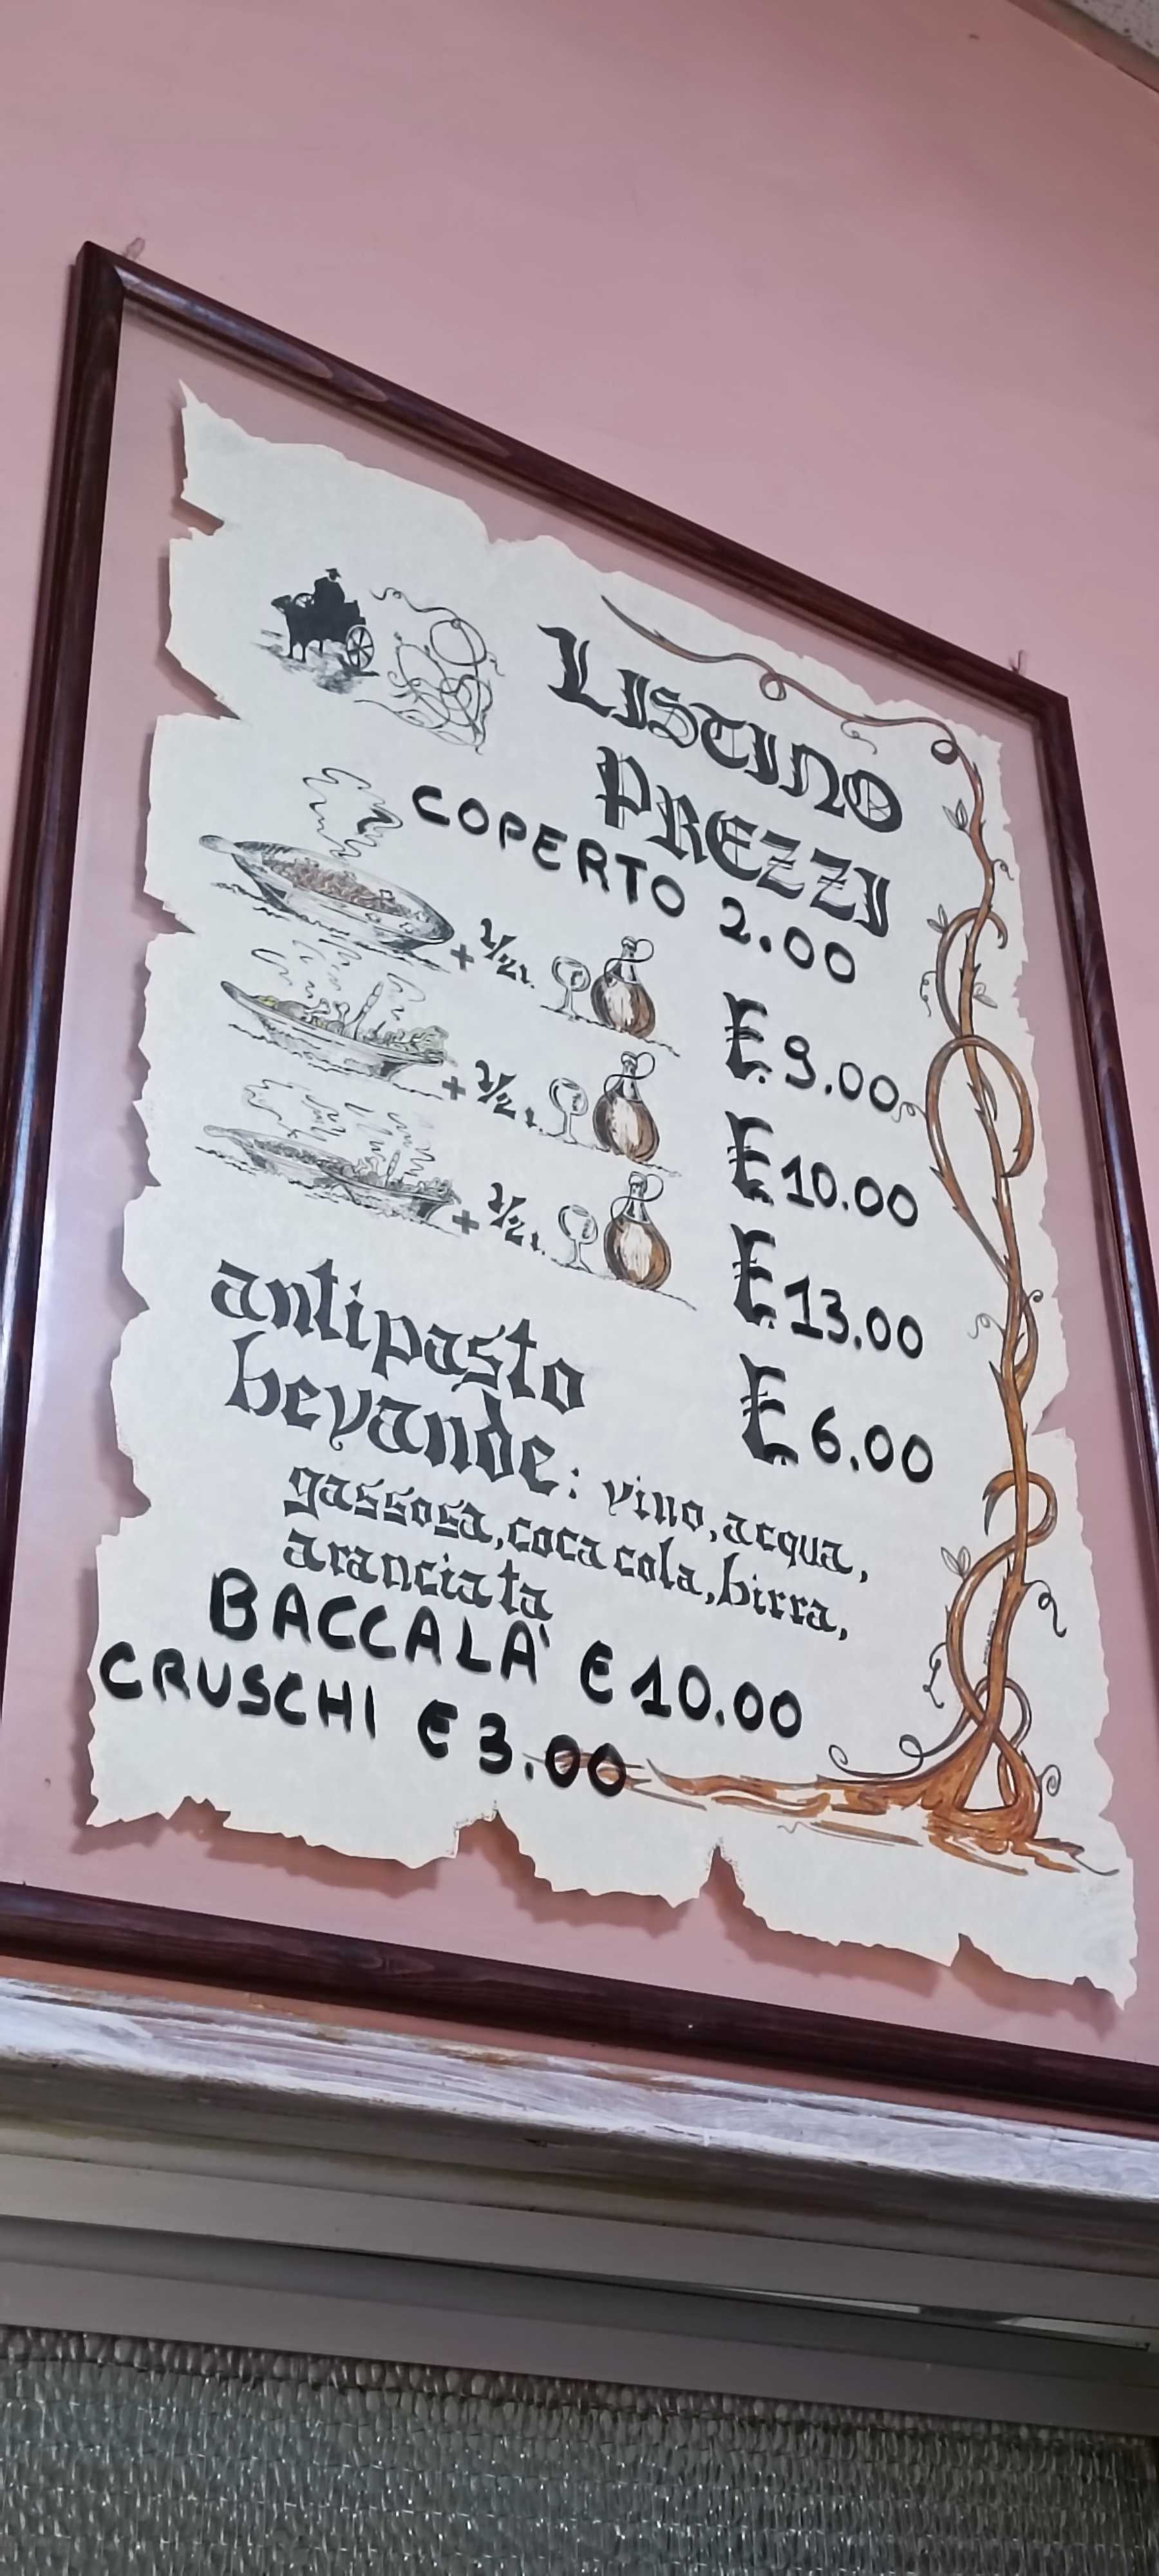 LISTINO
PREZZI
COPERTO 2.00
+ 1/2 l. £ 9.00
+ 1/2 l. £ 10.00
+ 1/2 l. £ 13.00
antipasto £ 6.00
bevande: vino, acqua,
gassosa, coca cola, birra,
aranciata
BACCALA' € 10.00
CRUSCHI € 3.00